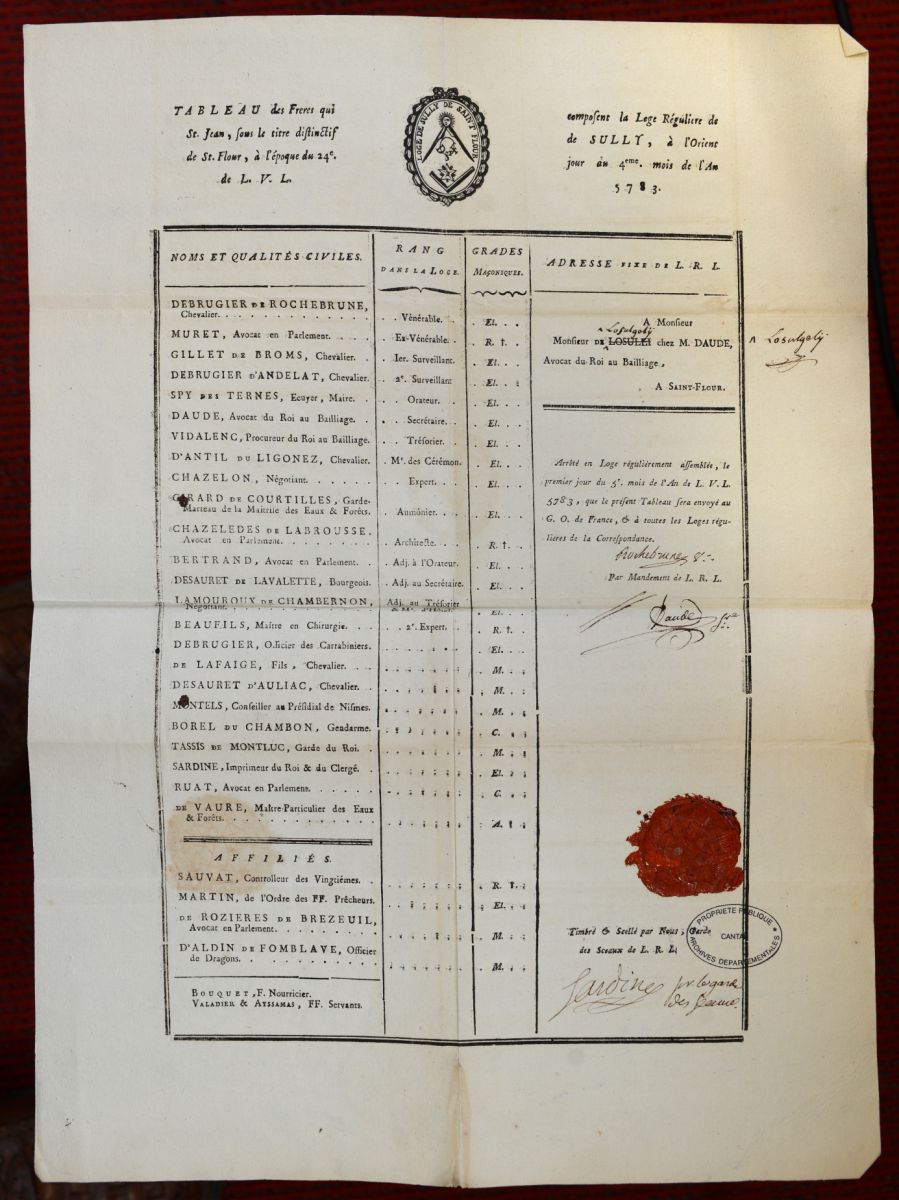 TABLEAU des Freres qui composent la Loge Régulière de
St. Jean, sous le titre distinctif de SULLY, à l'Orient
de St. Flour, à l'époque du 24e. jour du 4eme. mois de l'An
de L. V. L. 5783.
LOGE DE SULLY DE SAINT FLOUR
NOMS ET QUALITÉS CIVILES. RANG DANS LA LOGE. GRADES MAÇONIQUES. ADRESSE FIXE DE L. R. L.
DEBRUGIER DE ROCHEBRUNE,
Chevalier. Vénérable. El.
MURET, Avocat en Parlement. Ex-Vénérable. R. †.
GILLET DE BROMS, Chevalier. Ier. Surveillant El.
DEBRUGIER D'ANDELAT, Chevalier. 2e. Surveillant El.
SPY DES TERNES, Ecuyer, Maire. Orateur. El.
DAUDE, Avocat du Roi au Bailliage. Secrétaire. El.
VIDALENC, Procureur du Roi au Bailliage. Trésorier. El.
D'ANTIL DU LIGONEZ, Chevalier. Me. des Cérémon. El.
CHAZELON, Négotiant. Expert. El.
GIRARD DE COURTILLES, Garde-
Marteau de la Maîtrise des Eaux & Forêts. Aumônier. El.
CHAZELEDES DE LABROUSSE.
Avocat en Parlement. Architecte. R. †.
BERTRAND, Avocat en Parlement. Adj. à l'Orateur. El.
DESAURET DE LAVALETTE, Bourgeois. Adj. au Secrétaire. El.
LAMOUROUX DE CHAMBERNON,
Négotiant. Adj. au Trésorier El.
BEAUFILS, Maître en Chirurgie. 2e. Expert. R. †.
DEBRUGIER, Officier des Carrabiniers. El.
DE LAFAIGE, Fils, Chevalier. M.
DESAURET D'AULIAC, Chevalier. M.
MONTELS, Conseiller au Présidial de Nismes. M.
BOREL DU CHAMBON, Gendarme. C.
TASSIS DE MONTLUC, Garde du Roi. M.
SARDINE, Imprimeur du Roi & du Clergé. El.
RUAT, Avocat en Parlement. C.
DE VAURE, Maître-Particulier des Eaux
& Forêts. A.
AFFILIÉS.
SAUVAT, Controlleur des Vingtiémes. R. †.
MARTIN, de l'Ordre des FF. Prêcheurs. El.
DE ROZIERES DE BREZEUIL,
Avocat en Parlement. M.
D'ALDIN DE FOMBLAVE, Officier
de Dragons. M.
BOUQUET, F. Nourricier.
VALADIER & AYSSAMAS, FF. Servants.
A Monsieur
Losulgoly
Monsieur DE LOSULEI chez M. DAUDE,
Losulgoly
Avocat du Roi au Bailliage,
A SAINT-FLOUR.
Arrêté en Loge régulièrement assemblée, le
premier jour du 5e. mois de l'An de L. V. L.
5783, que le présent Tableau sera envoyé au
G. O. de France, & à toutes les Loges régu-
lieres de la Correspondance.
Rochebrune
Par Mandement de L. R. L.
Daude
Timbré & Scellé par Nous, Garde
des Sceaux de L. R. L.
PROPRIETE PUBLIQUE
CANTAL
ARCHIVES DEPARTEMENTALES
Sardine pr le garde
des sceaux